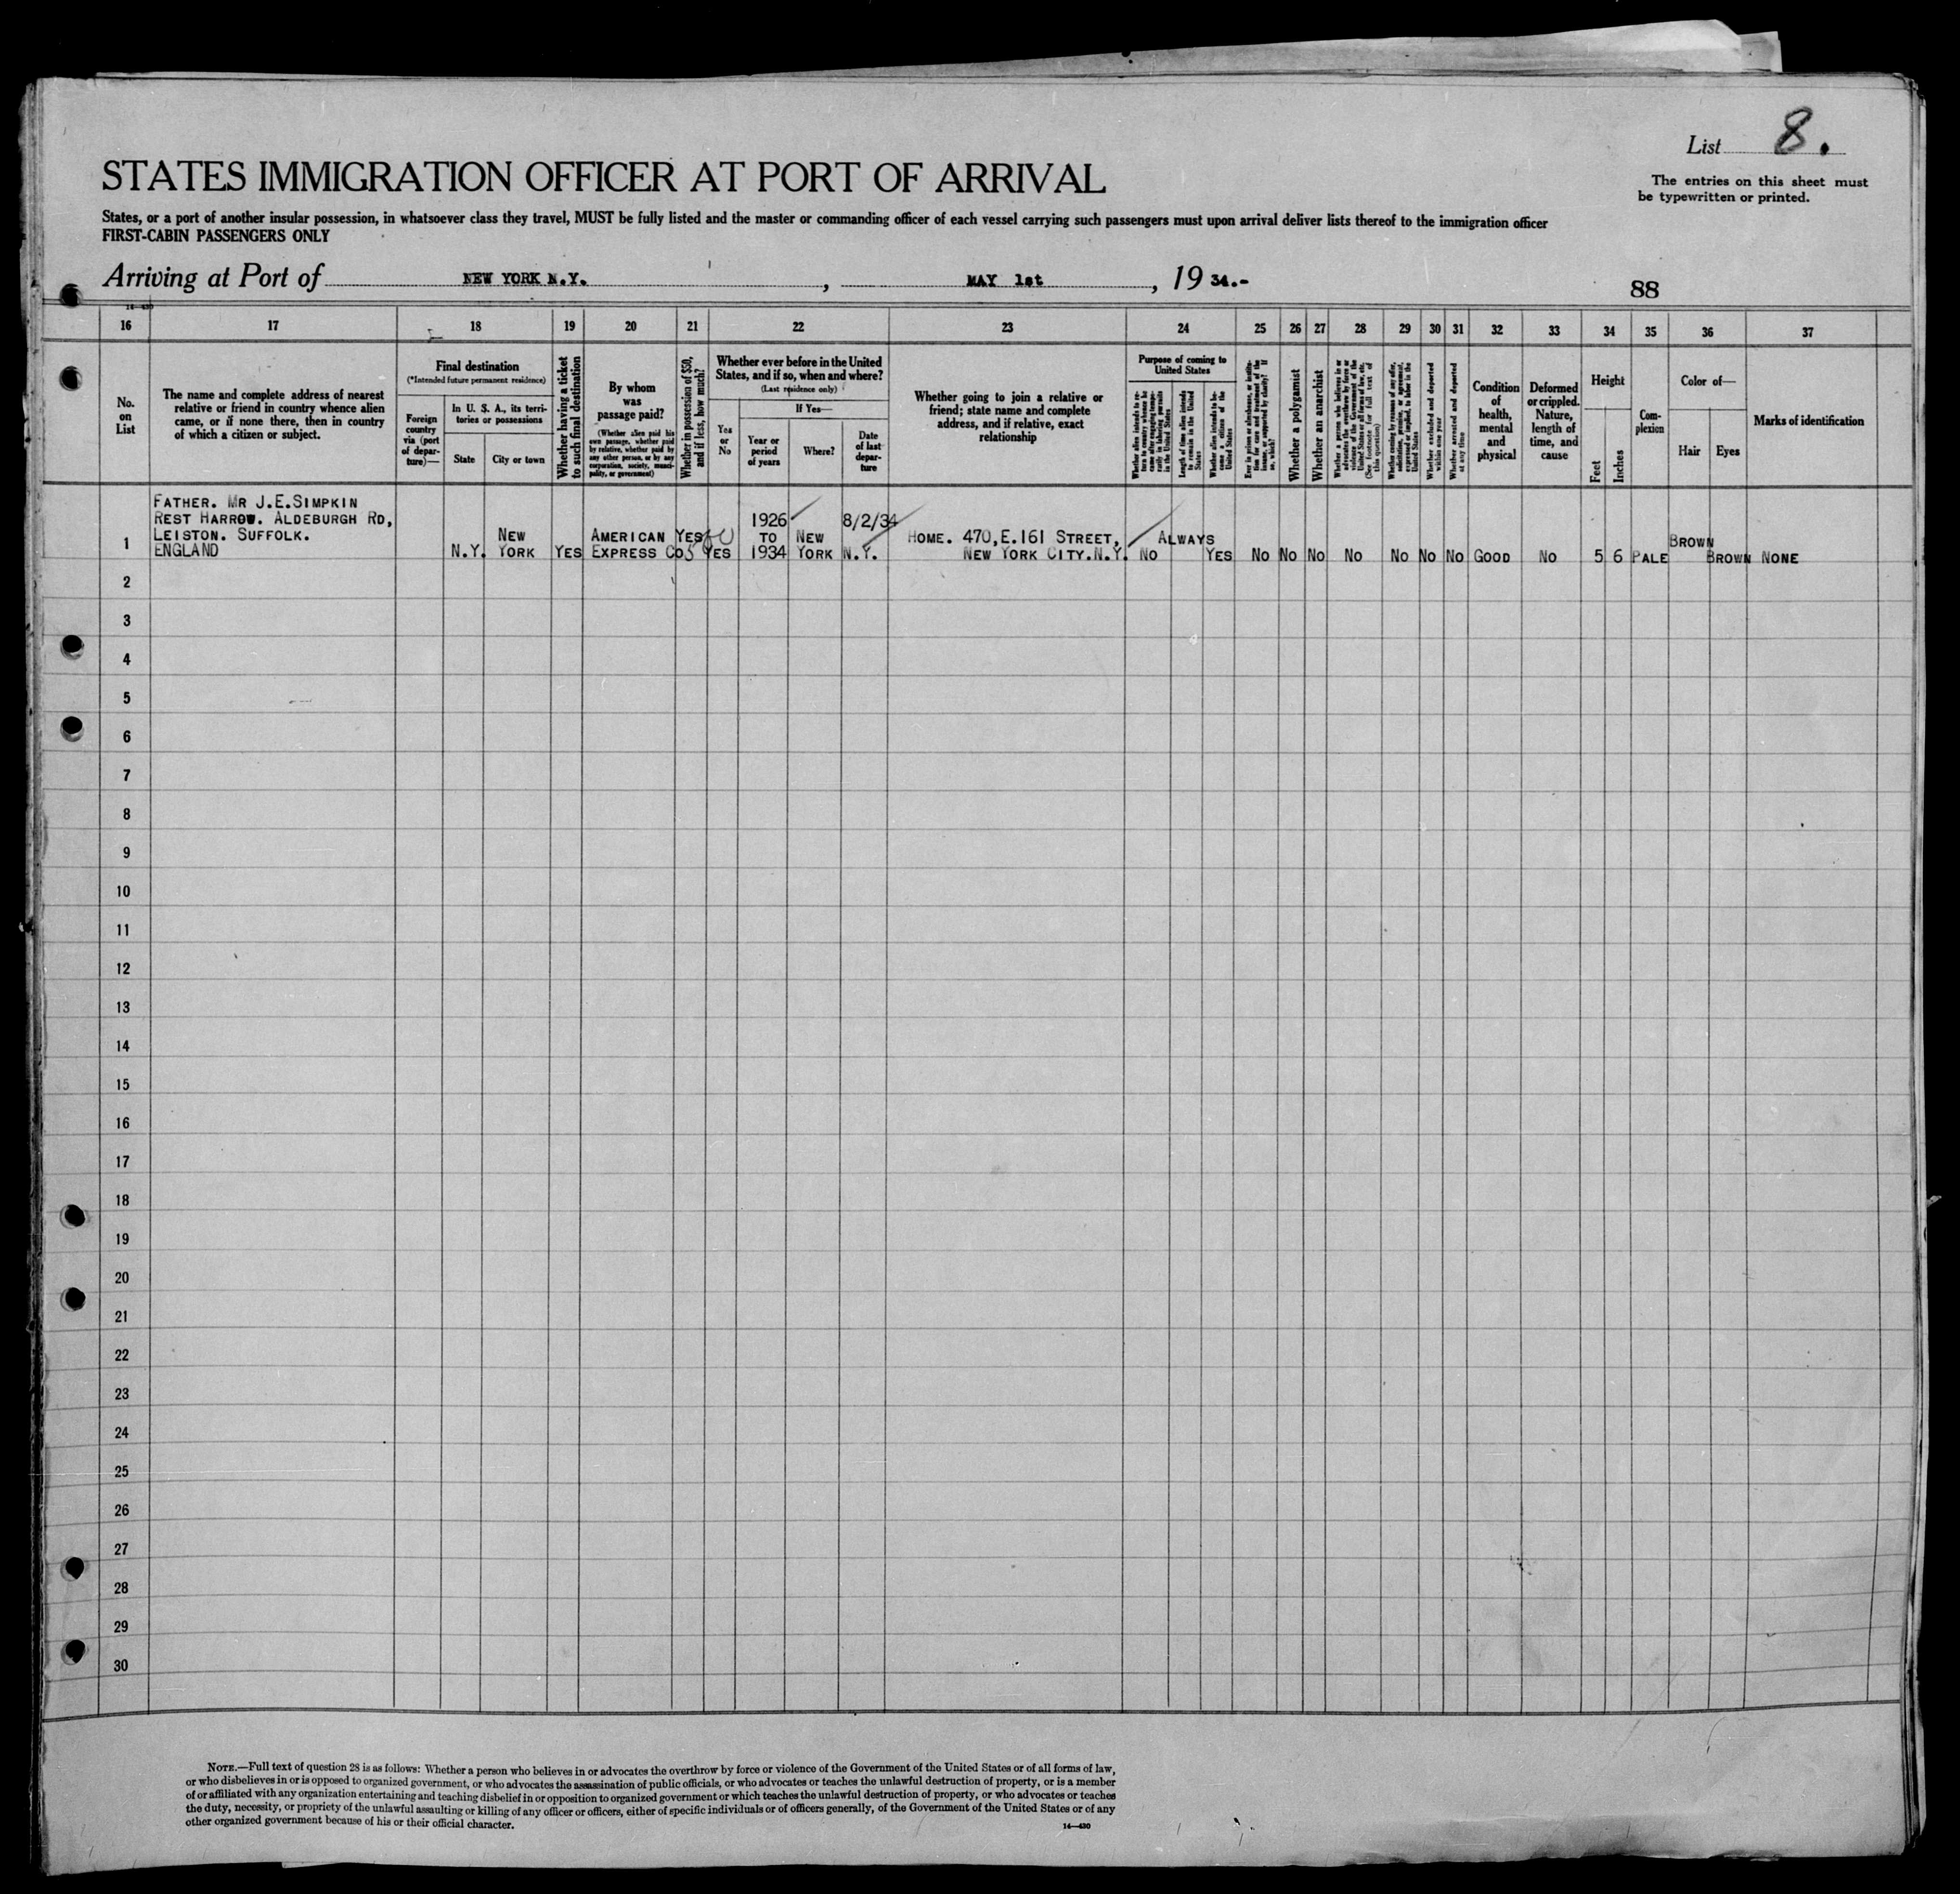 List 8.
The entries on this sheet must
be typewritten or printed.
STATES IMMIGRATION OFFICER AT PORT OF ARRIVAL
States, or a port of another insular possession, in whatsoever class they travel, MUST be fully listed and the master or commanding officer of each vessel carrying such passengers must upon arrival deliver lists thereof to the immigration officer
FIRST-CABIN PASSENGERS ONLY
Arriving at Port of NEW YORK N.Y. , MAY 1st , 19 34.-
88
16 17 18 19 20 21 22 23 24 25 26 27 28 29 30 31 32 33 34 35 36 37
No.
on
List
The name and complete address of nearest
relative or friend in country whence alien
came, or if none there, then in country
of which a citizen or subject.
Final destination
(*Intended future permanent residence)
Foreign
country
via (port
of depar-
ture)—
In U. S. A., its terri-
tories or possessions
State
City or town
Whether having a ticket
to such final destination
By whom
was
passage paid?
(Whether alien paid his
own passage, whether paid
by relative, whether paid by
any other person, or by any
corporation, society, munici-
pality, or government)
Whether in possession of $50,
and if less, how much?
Whether ever before in the United
States, and if so, when and where?
(Last residence only)
Yes
or
No
If Yes—
Year or
period
of years
Where?
Date
of last
depar-
ture
Whether going to join a relative or
friend; state name and complete
address, and if relative, exact
relationship
Purpose of coming to
United States
Whether alien intends to re-
turn to country whence he
came after engaging tempo-
rarily in laboring pursuits
in the United States
Length of time alien intends
to remain in the United
States
Whether alien intends to be-
come a citizen of the
United States
Ever in prison or almshouse, or institu-
tion for care and treatment of the
insane, or supported by charity? If
so, which?
Whether a polygamist
Whether an anarchist
Whether a person who believes in or
advocates the overthrow by force or
violence of the Government of the
United States or all forms of law, etc.
(See footnote for full text of
this question)
Whether coming by reason of any offer,
solicitation, promise, or agreement,
expressed or implied, to labor in the
United States
Whether excluded and deported
within one year
Whether arrested and deported
at any time
Condition
of
health,
mental
and
physical
Deformed
or crippled.
Nature,
length of
time, and
cause
Height
Feet
Inches
Com-
plexion
Color of—
Hair
Eyes
Marks of identification
FATHER. MR J.E.SIMPKIN
REST HARROW. ALDEBURGH RD,
LEISTON. SUFFOLK.
ENGLAND
1
N.Y.
NEW
YORK
YES
AMERICAN
EXPRESS CO
YES
YES
1926
TO
1934
NEW
YORK
8/2/34
N.Y.
HOME. 470,E.161 STREET,
NEW YORK CITY.N.Y.
NO
ALWAYS
YES
NO NO NO NO NO NO NO GOOD NO 5 6 PALE
BROWN
BROWN NONE
2
3
4
5
6
7
8
9
10
11
12
13
14
15
16
17
18
19
20
21
22
23
24
25
26
27
28
29
30
NOTE.—Full text of question 28 is as follows: Whether a person who believes in or advocates the overthrow by force or violence of the Government of the United States or of all forms of law,
or who disbelieves in or is opposed to organized government, or who advocates the assassination of public officials, or who advocates or teaches the unlawful destruction of property, or is a member
of or affiliated with any organization entertaining and teaching disbelief in or opposition to organized government or which teaches the unlawful destruction of property, or who advocates or teaches
the duty, necessity, or propriety of the unlawful assaulting or killing of any officer or officers, either of specific individuals or of officers generally, of the Government of the United States or of any
other organized government because of his or their official character.
14—430